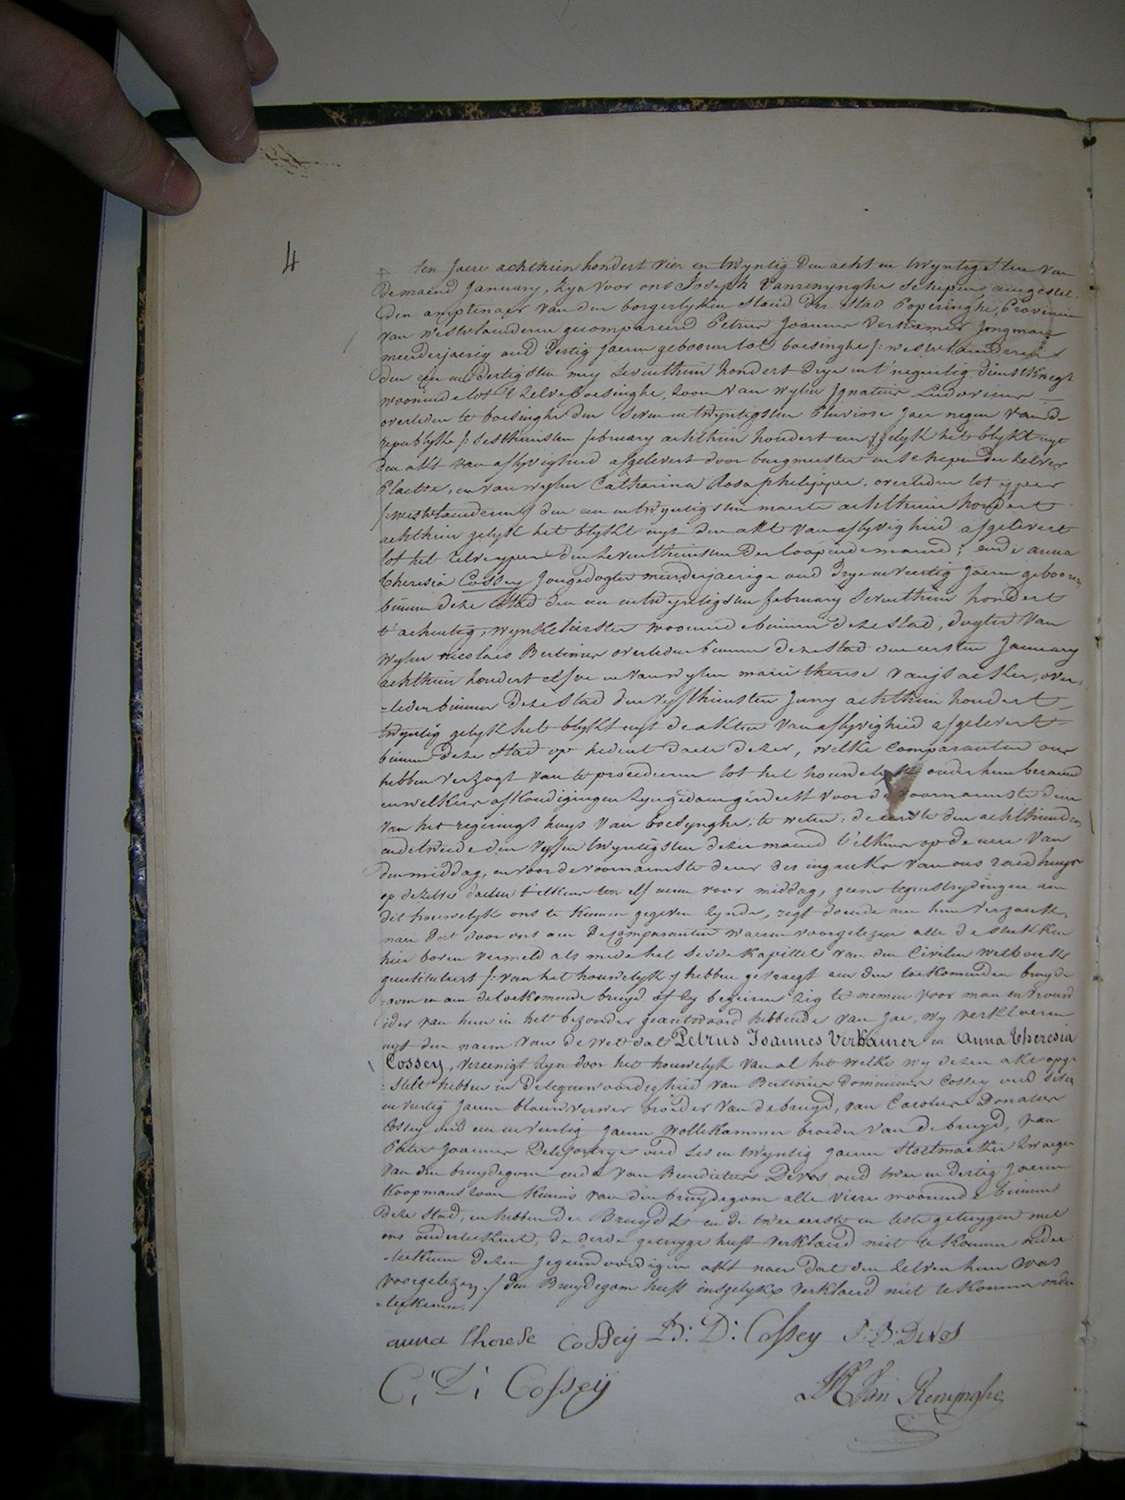 4
ten Jaere achthien hondert vier en twyntig den acht en twyntigsten van
de maend January, Zyn voor ons Joseph Vanrenynghe Schepen, aengestel-
den amptenaer van den borgerlyken Staend der Stad Poperinghe, Provincie
van westvlaenderen gecompareerd Petrus Joannes Verkamer Jongman
meerderjaerig oud dertig Jaeren gebooren tot boesinghe /: westvlaenderen :/
den een en dertigsten mey seventhien hondert drye en t'negentig dienstknegt
woonende tot 't zelve boesinghe, zoon van wylen Ignatius Ludovicus
overleden te boesinghe den seven en twyntigsten Pluviose Jaer negen van de
republyke /: sesthiensten february achthien hondert een :/ gelyk het blykt uyt
den akt van aflyvigheid afgelevert door burgmeester en schepen der zelver
Plaetse, en van wylen Catharina Rosa philippe, overleden tot yper
/: westvlaenderen :/ den een en twyntigsten maerte achthien hondert
achthien gelyk het blykt uyt den akt van aflyvigheid afgelevert
tot het zelve yper den seventhiensten der loopende maend; ende anna
theresia Cossey Jongedogter meerderjaerige oud drye en veertig Jaeren gebooren
binnen deze Stad den een en twyntigsten february seventhien hondert
t'achentig, wynkelierster woonende binnen deze stad, dogter van
wylen nicolais Bertinus overleden binnen deze stad den eersten January
achthien hondert elf en van wylen marie therese vanjsacker, over-
-leden binnen deze stad den vyfthiensten Juny achthien hondert
twyntig gelyk het blykt uyt de akten van aflyvigheid afgelevert
binnen deze stad op hedent daete dezer, welke Comparanten ons
hebben verzogt van te procederen tot het houwelyk onder hun beraemd
en welkers afkondigingen zyn gedaen geweest voor de voornaemste deure
van het regerings huys van boesynghe, te weten: de eerste den achthiensten
ende tweede den vyf en twyntigsten dezer maend t'elkens op de uere van
den middag, en voor de voornaemste deure des ingancks van ons raedhuys
op dezelve daeten t'elkens ten elf ueren voor middag, geene tegenstrydingen aen
dit houwelyk ons te kennen gegeven zynde, regt doende aen hun verzoek,
naer dat door ons aen de Comparanten waeren voorgelezen alle de stukken
hier boven vermeld als mede het sesde kapittel van den Civilen wetboek
geintituleert /: van het houwelyk :/ hebben gevraegt aen den toekomenden bruyde-
-gom en aen de toekomende bruyd of zy begeiren zig te nemen voor man en vrouw
ider van hun in het bezonder geantwoord hebbende van Jae, wy verklaeren
uyt den naem van de wet dat Petrus Joannes Verkamer en Anna Theresia
Cossey, vereenigt zyn door het houwelyk van al het welke wy dezen akt opge-
-stelt hebben in de tegenwoordigheid van Bertinus Dominicus Cossey oud dry
en veertig Jaeren blauwverwer broeder van de bruyd, van Carolus Donatus
Cossey oud een en veertig Jaeren wollekammer broeder van de bruyd, van
Pieter Joannes Delefortrye oud ses en twyntig Jaeren stoelmaeker zwaeger
van den bruydegom ende van Benedictus Devos oud twee en dertig Jaeren
koopmans zoon kennis van den bruydegom alle viere woonende binnen
deze Stad, en hebben de Bruyd en de twee eerste en leste getuygen met
ons onderteekent, de derde getuyge heeft verklaerd niet te konnen onder-
-teekenen dezen Jegenwoordigen akt naer dat den zelven hun was
voorgelezen /: den Bruydegom heeft insgelyks verklaerd niet te konnen onder-
-teekenen :/
anna therese cossey B: D: Cossey J: B: Devos
C: D: Cossey J Van Renynghe